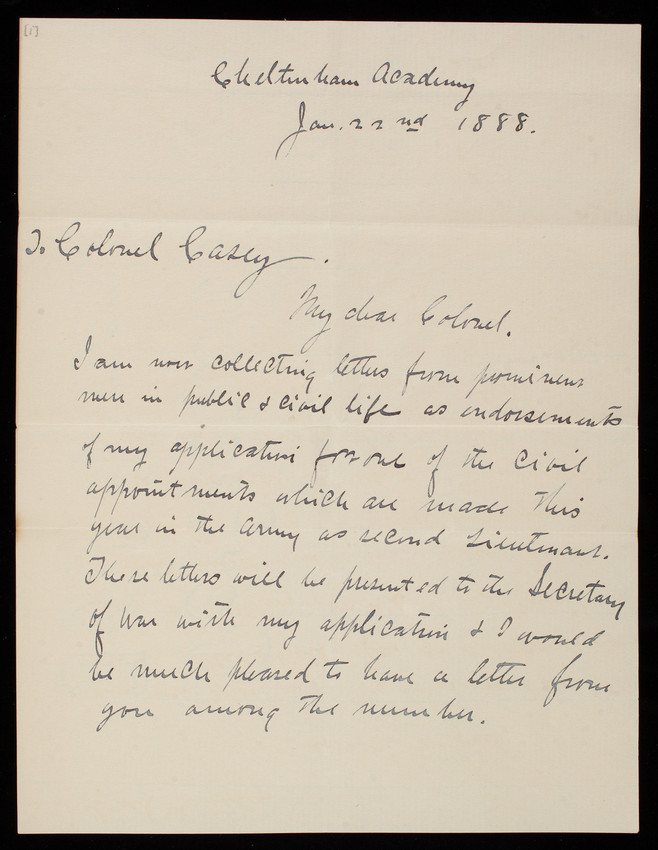 [1]
Cheltenham Academy
Jan. 22nd 1888.
To Colonel Casey.
My dear Colonel.
I am now collecting letters from prominent
men in public & civil life as endorsements
of my application for one of the civil
appointments which are made this
year in the Army as second Lieutenant.
These letters will be presented to the Secretary
of War with my application & I would
be much pleased to have a letter from
you among the number.